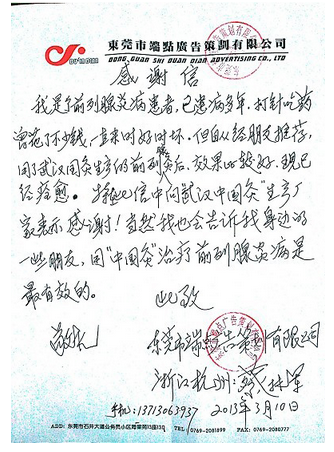 東莞市端點廣告策劃有限公司
DONG GUAN SHI DUAN DIAN ADVERTISING CO., LTD
感谢信
我是个前列腺炎病患者,已患病多年,打针吃药
曾花了不少钱,一直来时好时坏,但自从经朋友推荐,
用了武汉中国灸生产的前列灸后,效果比较好,现已
经痊愈。
信中向武汉中国灸"生产厂
家表示感谢!当然我也会告诉我身边的
一些朋友,用"中国灸"治疗前列腺炎病是
最有效的。
此致
敬礼
东莞市端点广告策划有限公司
浙江杭州:
手机:13713063937 2013年3月10日
ADD: 东莞市石井大道公务员小区育荣阁13D TEL: 0769-2081899 FAX: 0769-2080777